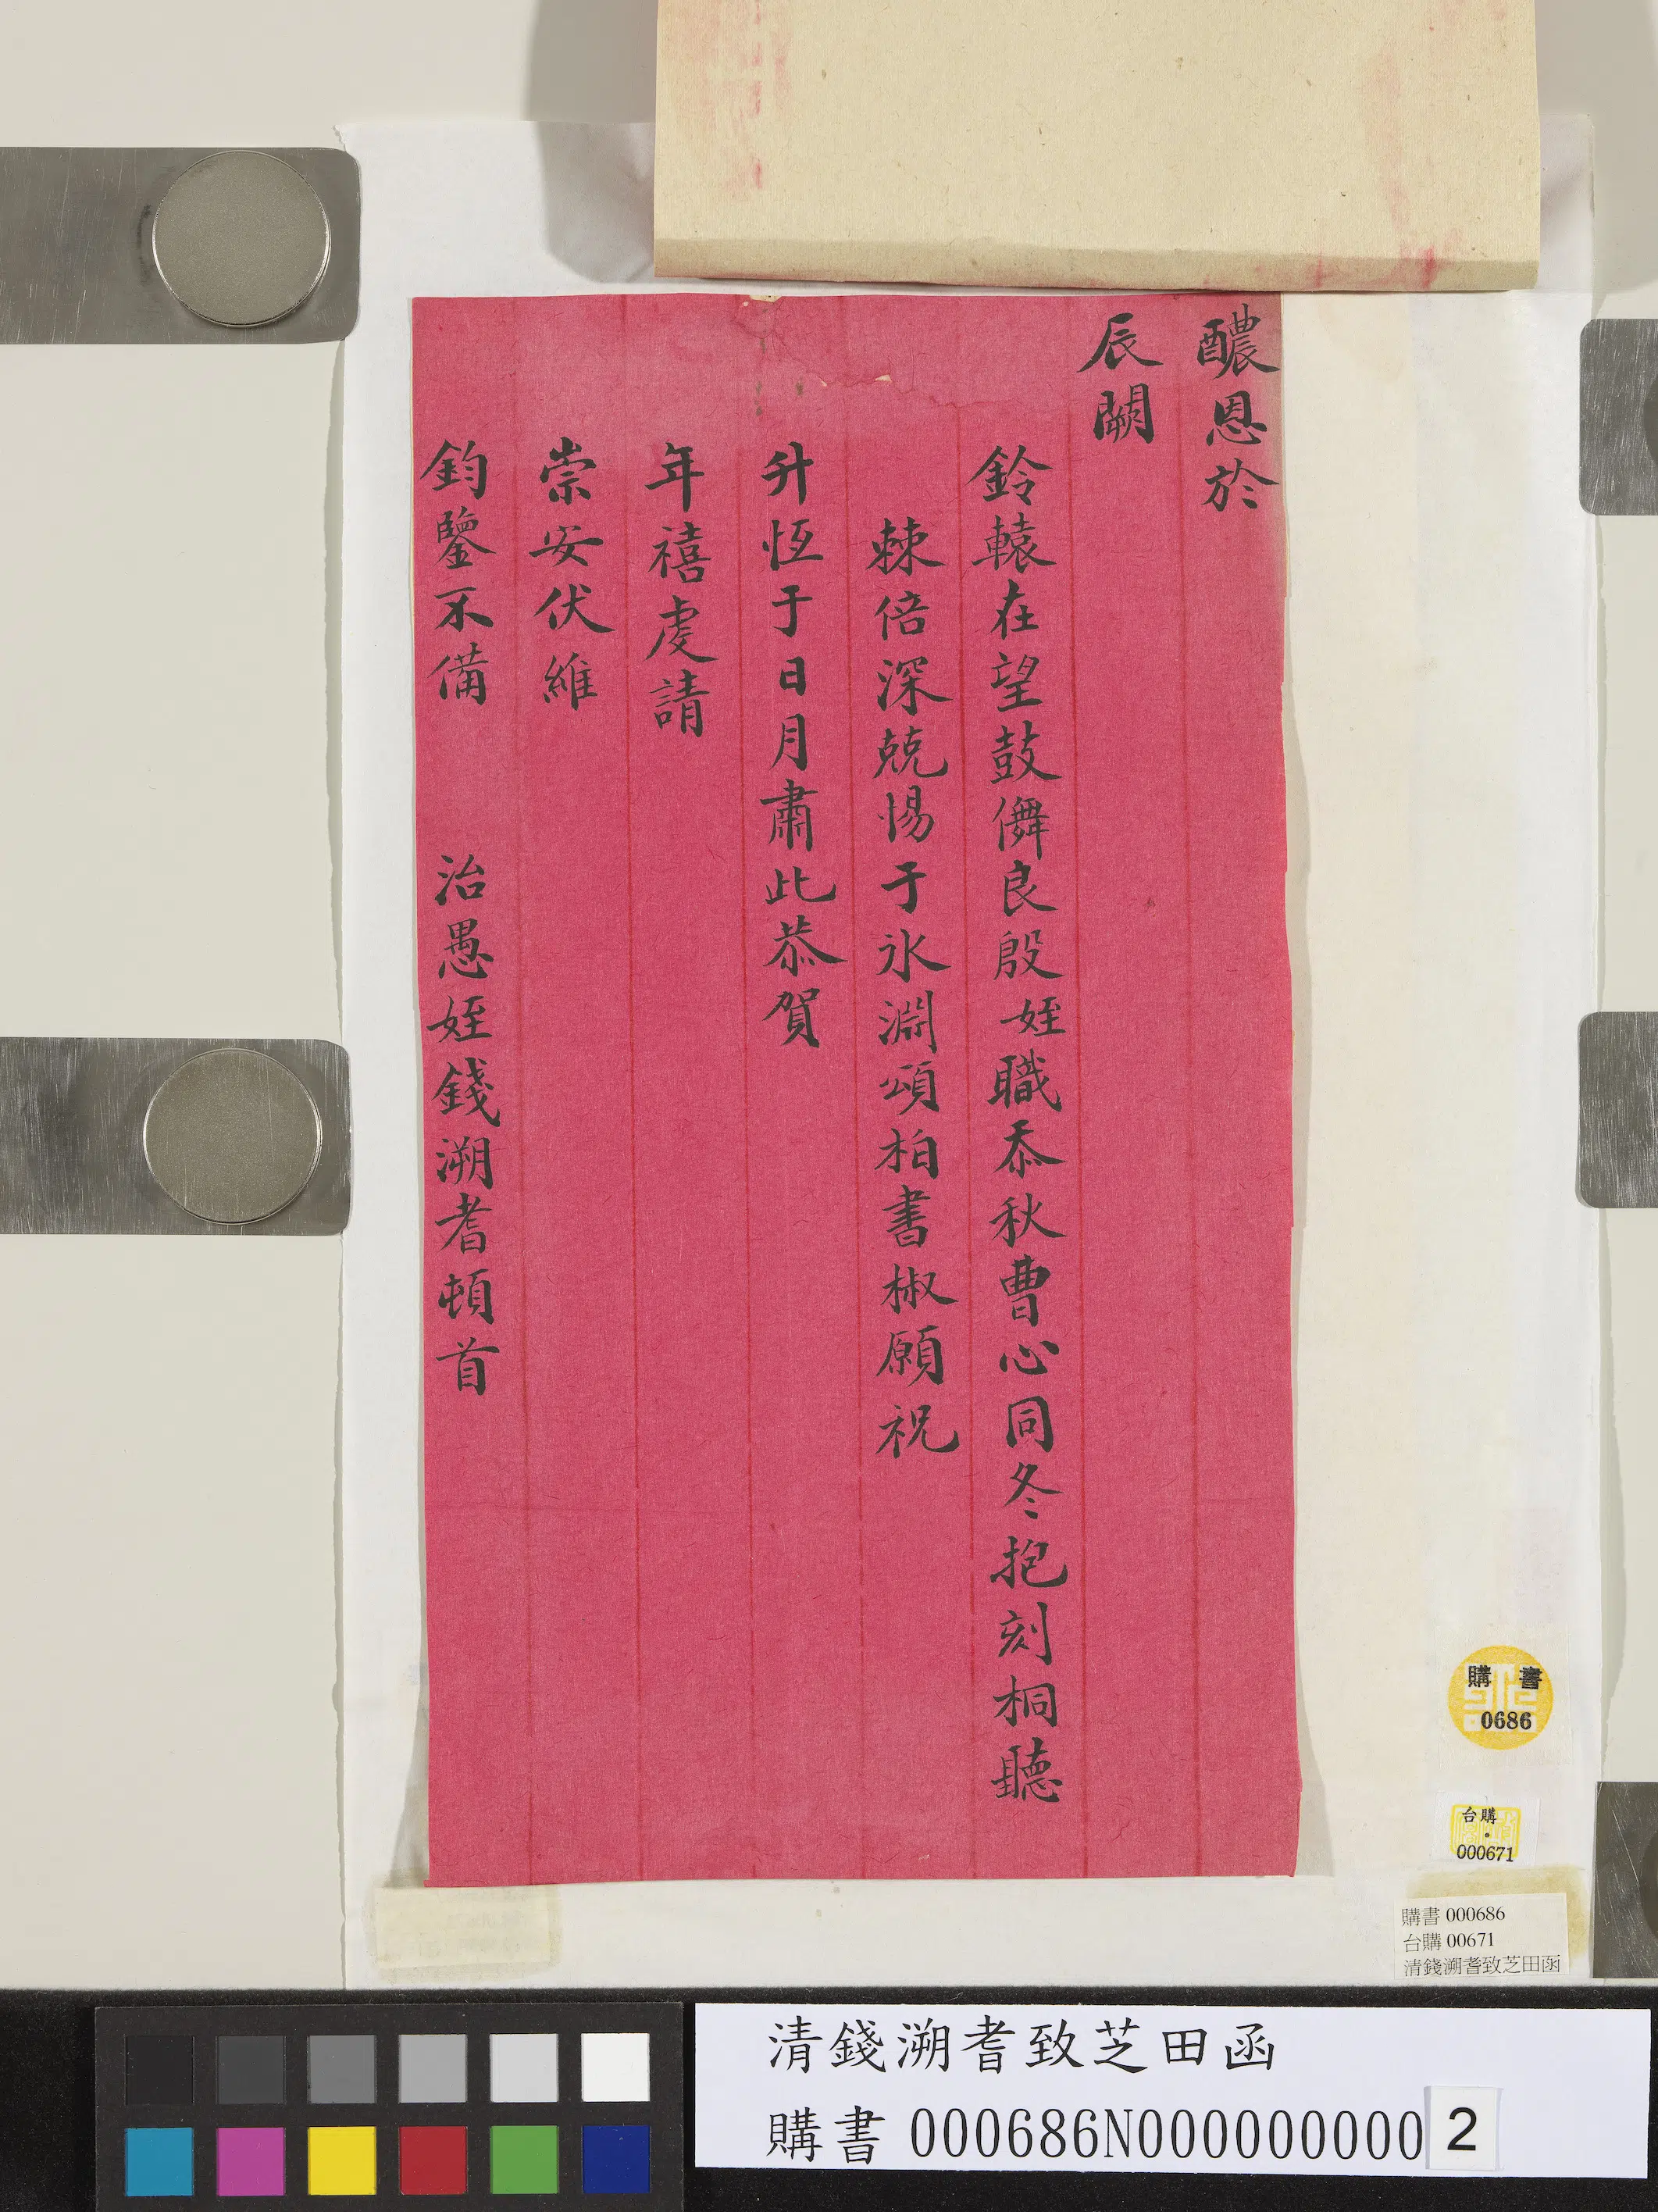 醲恩於
辰闕
鈴轅在望鼓儛良殷姪職忝秋曹心同冬抱刻桐聽
棘倍深兢惕于氷淵頌柏書椒願祝
升恆于日月肅此恭賀
年禧虔請
崇安伏維
鈞鑒不備 治愚姪錢溯耆頓首
購書
0686
台購
000671
購書 000686
台購 00671
清錢溯耆致芝田函
清錢溯耆致芝田函
購書 000686N000000000 2